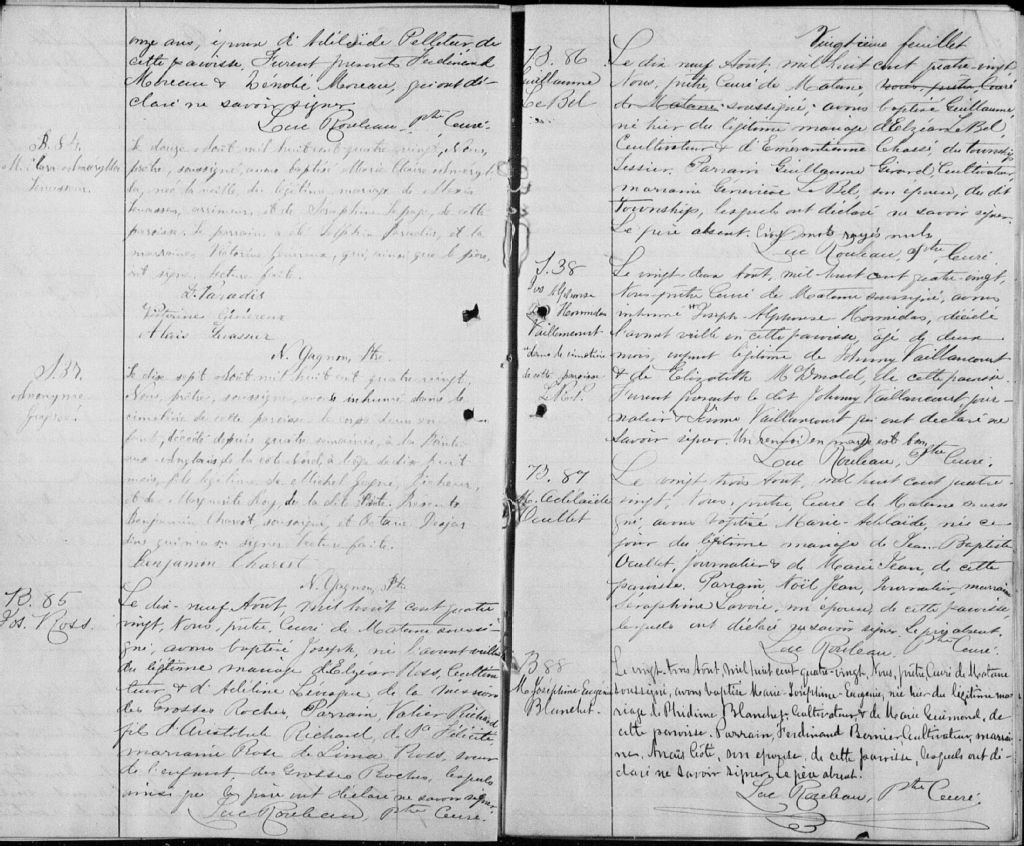 onze ans, époux d'Adélaïde Pelletier, de
cette paroisse. Furent présents Ferdinand
Moreau & Zénobie Moreau, qui ont dé-
claré ne savoir signer.
Luc Rouleau, Ptre Curé.
B. 84.
M. Clara
Levasseur.
Le douze Août mil huit cent quatre vingt, Nous,
prêtre, soussigné, avons baptisé Marie Claire
la, née la veille du légitime mariage de Alexis
Levasseur, arrimeur, et de Joséphine le page, de cette
paroisse. Le parrain a été Delphin Paradis, et la
marraine Victorine Généreux, qui, ainsi que le père,
ont signé. Lecture faite.
D. Paradis
Victorine Généreux
Alexis Levasseur
N. Gagnon, Ptre.
S. 37.
Anonyme
Gagné.
Le dix sept Août mil huit cent quatre vingt,
Nous, prêtre, soussigné, avons inhumé dans le
cimetière de cette paroisse le corps d'un en-
fant, décédé depuis quatre semaines, à la Pointe
aux Anglais de la côte Nord, à l'âge de dix huit
mois, fils légitime de Michel Gagné, pêcheur,
et de Marguerite Roy, de la dite Pointe. Présents
Benjamin Charest, soussigné, et Octave Desjar
dins qui n'a su signer. Lecture faite.
Benjamin Charest
N. Gagnon, Pt.
B. 85
Jos. Ross.
Le dix-neuf Août, mil huit cent quatre
vingt, Nous, prêtre, Curé de Matane soussi-
gné, avons baptisé Joseph, né l'avant veille
du légitime mariage d'Elzéar Ross, Cultiva-
teur, & d'Adéline Levasque de la mission
des Grosses Roches, Parrain, Valier Richard
fils d'Aristobule Richard, de Ste Félicité
marraine Rose de Lima Ross, sœur
de l'enfant, des Grosses Roches, lesquels
ainsi que le père ont déclaré ne savoir signer.
Luc Rouleau, Ptre Curé.
Vingtième feuillet
B. 86
Guillaume
LeBel
Le dix neuf Août, mil huit cent quatre-vingt
Nous, prêtre, Curé de Matane, nous, prêtre, Curé
de Matane soussigné, avons baptisé Guillaume,
né hier du légitime mariage d'Elzéar LeBel,
Cultivateur & d'Emérantienne Chassé, du township
Tessier. Parrain Guillaume Girard, Cultivateur,
marraine Geneviève Le Bel, son épouse, du dit
Township, lesquels ont déclaré ne savoir signer.
Le père absent. Cinq mots rayés nuls
Luc Rouleau, Ptre Curé.
S. 38
Jos Alphonse
Hormidas
Vaillancourt
dans le cimetière
de cette paroisse
Le vingt deux Août, mil huit cent quatre vingt,
Nous prêtre Curé de Matane soussigné, avons
inhumé Joseph-Alphonse Hormidas, décédé
l'avant veille en cette paroisse, âgé de deux
mois, enfant légitime de Johnny Vaillancourt
& de Elizabeth McDonald, de cette paroisse.
Furent présents le dit Johnny Vaillancourt jour-
nalier & Vaillancourt qui ont déclaré ne
savoir signer. Un renvoi en marge est bon
Luc Rouleau, Ptre Curé.
B. 87
M. Adélaïde
Ouellet
Le vingt trois Août, mil huit cent quatre-
vingt, Nous, prêtre, Curé de Matane soussi-
gné, avons baptisé Marie-Adélaïde, née ce
jour du légitime mariage de Jean-Baptiste
Ouellet, Journalier & de Marie Jean, de cette
paroisse. Parrain, Noël Jean, Journalier, marraine
Séraphine Lavoie, son épouse, de cette paroisse,
lesquels ont déclaré ne savoir signer. Le père absent.
Luc Rouleau, Ptre Curé.
B 88
M. Joséphine Eugénie
Blanchet.
Le vingt-trois Août, mil huit cent quatre-vingt, Nous, prêtre Curé de Matane
soussigné, avons baptisé Marie-Joséphine-Eugénie, née hier du légitime ma-
riage de Phidime Blanchet, Cultivateur, & de Marie Guimond, de
cette paroisse. Parrain, Ferdinand Bernier, Cultivateur, marrai-
ne, Anaïs Côté, son épouse, de cette paroisse, lesquels ont dé-
claré ne savoir signer. Le père absent.
Luc Rouleau, Ptre Curé.